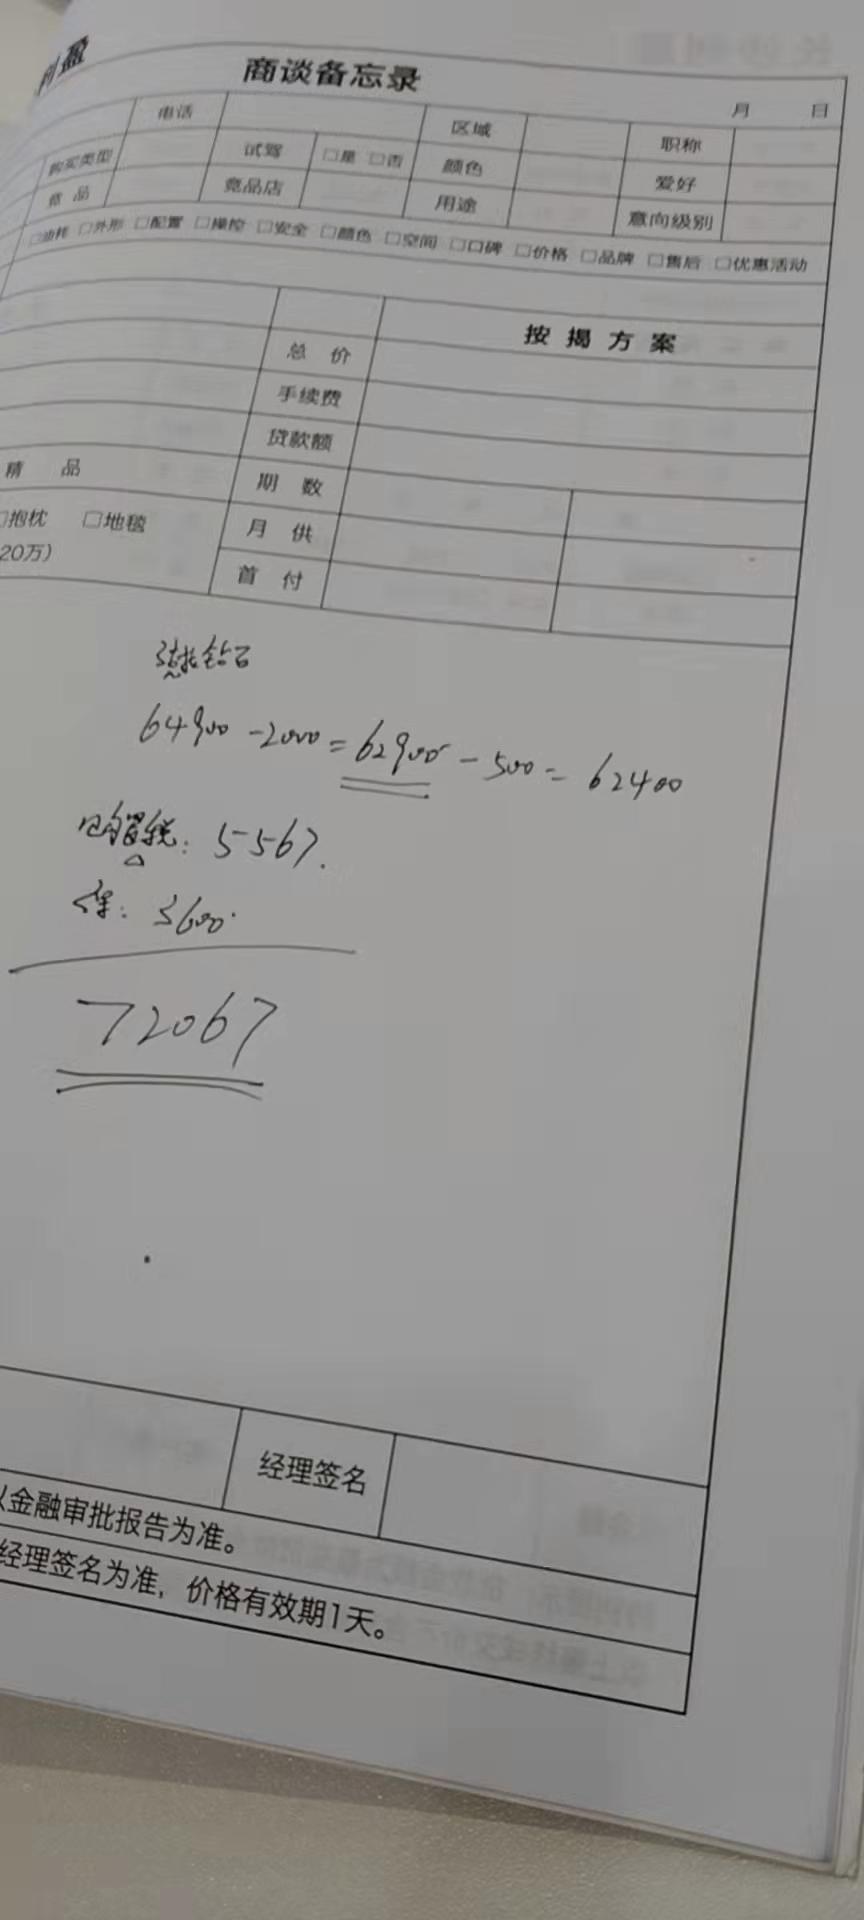 利盈
商谈备忘录
月 日
电话 区域 职称
购买类型 试驾 □是 □否 颜色 爱好
竞品 竞品店 用途 意向级别
□油耗 □外形 □配置 □操控 □安全 □颜色 □空间 □口碑 □价格 □品牌 □售后 □优惠活动
按揭方案
总价
手续费
贷款额
精品 期数
□抱枕 □地毯 月供
20万） 首付
钻石
64900 -2000 = 62900 - 500 = 62400
购置税: 5567.
保: 3600
72067
经理签名
以金融审批报告为准。
经理签名为准，价格有效期1天。